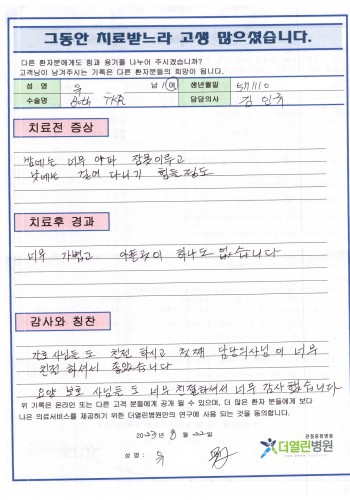 그동안 치료받느라 고생 많으셨습니다.
다른 환자분에게도 힘과 용기를 나누어 주시겠습니까?
고객님이 남겨주시는 기록은 다른 환자분들의 희망이 됩니다.
성 명 우 남 / 여 생년월일 571110
수술명 Both TKR 담당의사 김 인
치료전 증상
밤에는 너무 아파 잠못이루고
낮에는 걸어 다니기 힘든정도
치료후 경과
너무 가볍고 아픈곳이 하나도 없습니다
감사와 칭찬
간호사님들도 친절 하시고 첫째 담당의사님이 너무
친절 하셔서 좋았습니다
요양 보호 사님들도 너무 친절하셔서 너무 감사 했습니다
위 기록은 온라인 또는 다른 고객 분들에게 공개 될 수 있으며, 더 많은 환자 분들에게 보다
나은 의료서비스를 제공하기 위한 더열린병원만의 연구에 사용 되는 것을 동의합니다.
2023년 8월 22일
성 명: 우
관절종합병원
더열린병원